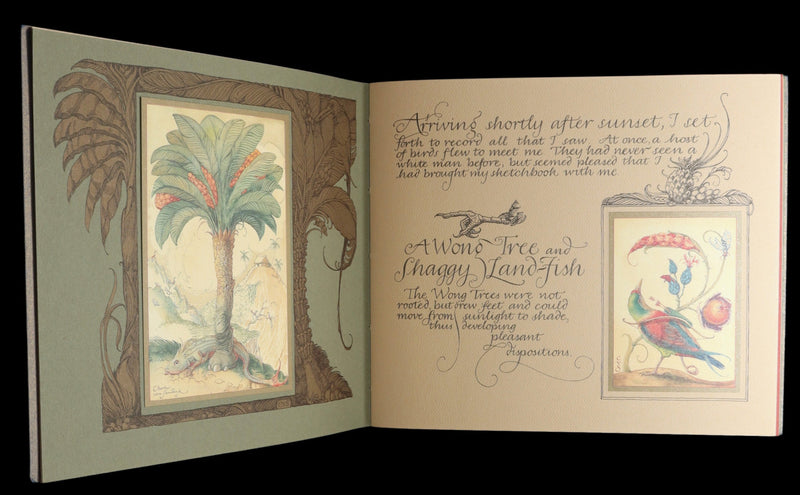 Arriving shortly after sunset, I set
forth to record all that I saw. At once, a host
of birds flew to meet me. They had never seen a
white man before, but seemed pleased that I
had brought my sketchbook with me.
A Wong Tree and
Shaggy Land-Fish
The Wong Trees were not
rooted, but drew feet and could
move from sunlight to shade,
thus developing
pleasant
dispositions.